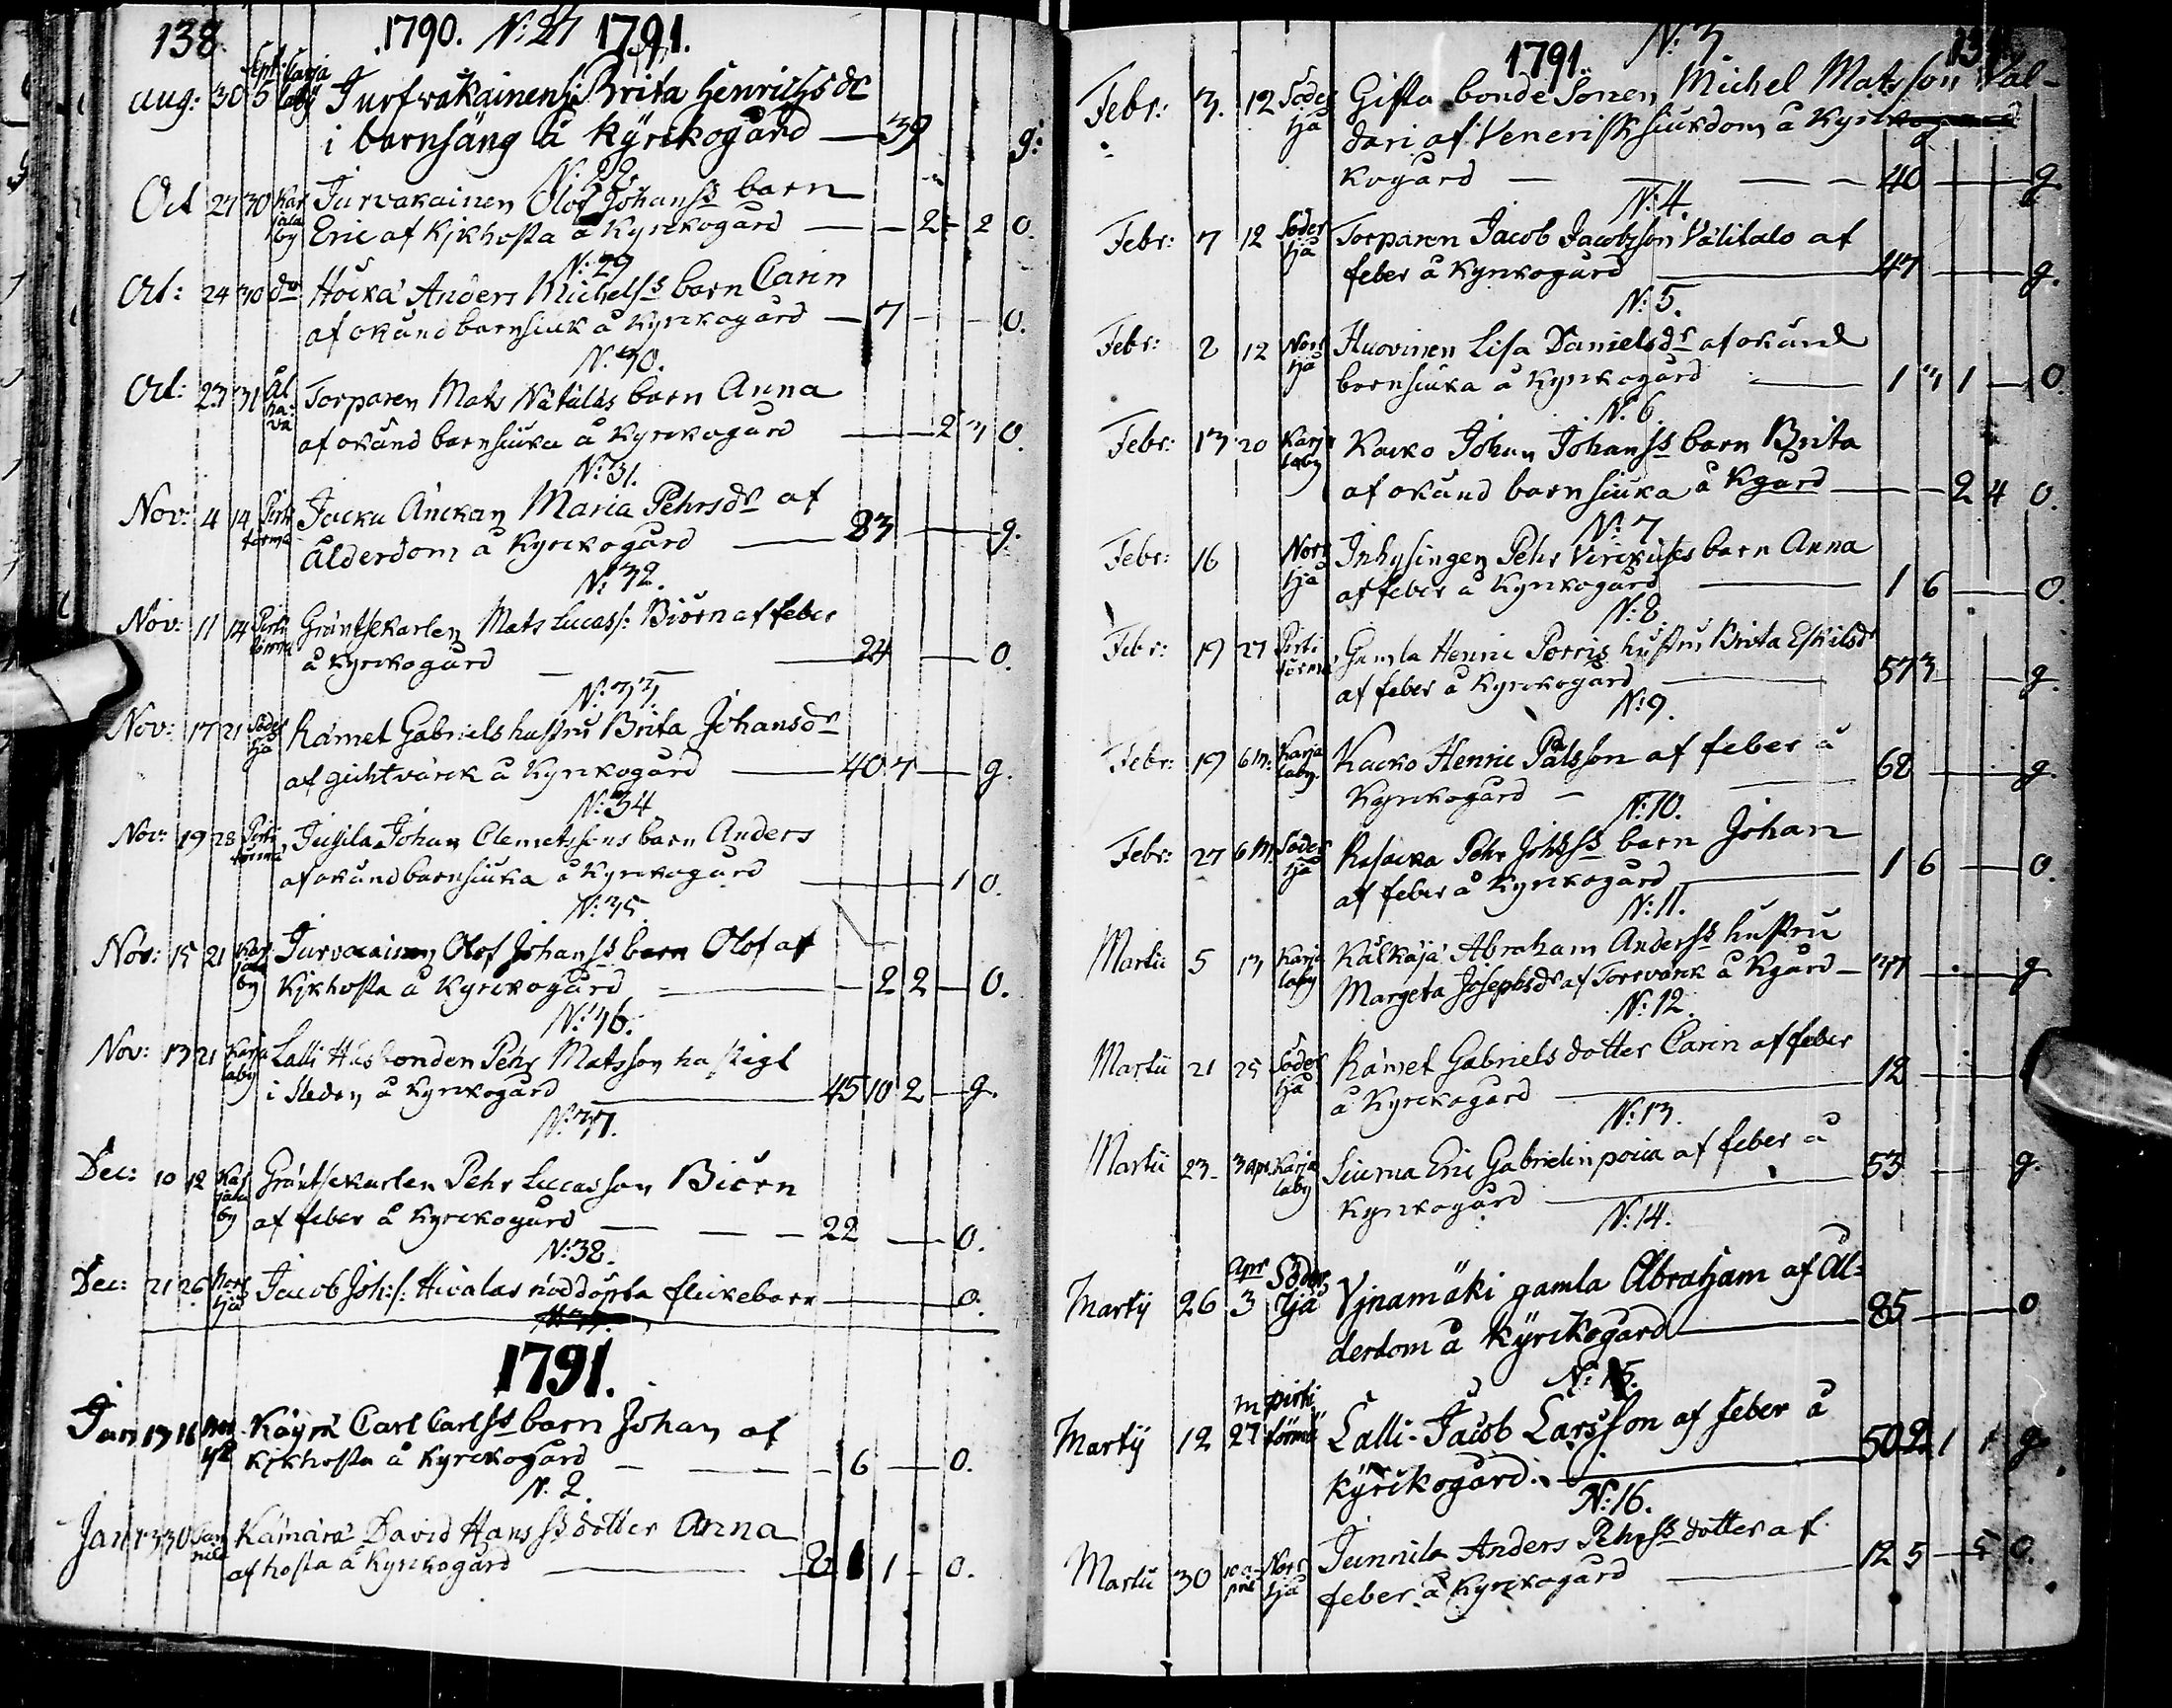 138. 1790. N:27 1791.
Aug: 30 Sept: 5 Karjalaby Jurfvakainens: Brita Henrichsdr
i barnsäng å Kÿrckogård — 39 g:
N. 28.
Oct 27 30 Karjalaby Jurvakainen Olof Johanss barn
Eric af Kikhosta å Kyrckogård — 2 - 2 0.
N:29
Oct: 24 30 do Höckä Anders Michelss barn Carin
af okänd barnsiuk å Kyrckogård — 7 — 0.
N:30.
Oct: 23 31 Torparen Mats Nätäläs barn Anna
af okänd barnsiuka å Kyrckogård — 2 3 0.
N:31.
Nov: 4 14 Pirtitörmä Jacku Änckan Maria Pehrsdr af
Ålderdom å Kyrckogård — 83 — g.
N:32.
Nov: 11 14 Pirtitörmä Gräntsekarlen Mats Lucass: Biörn af feber
å Kyrckogård — 24 — 0.
N:33.
Nov: 17 21 Söderyjå Rämet Gabriels hustru Brita Johansdr
af gichtvärck å Kyrckogård — 40 7 — g.
N:34
Nov: 19 28 Pirtitörmä Jußila Johan Clemetssons barn Anders
af okänd barnsiuka å Kyrckogård — 1 0.
N:35.
Nov: 15 21 Karjalaby Jurvacainen Olof Johanss barn Olof af
Kikhosta å Kyrckogård — 2 2 — 0.
N:36.
Nov: 13 21 Karjalaby Lalli Husbonden Pehr Matsson hastigt
i Sleden å Kyrckogård — 45 10 2 — g.
N:37.
Dec: 10 12 Karjalaby Gräntsekarlen Pehr Lucasson Biörn
af feber å Kyrckogård — 22 — 0.
N:38.
Dec: 21 26 Norryjå Jacob Joh:s: Hivalas nöddöpta flickebarn — 0.
1791.
Jan 13 16 Norryå Käyrä Carl Carlss barn Johan af
Kikhosta å Kyrckogård — 6 — 0.
N. 2.
Jan 13 30 Kämärä David Hanss dotter Anna
af hosta å Kyrckogård — 2 1 1 - 0.
1791. N:3. 139
Febr: 3. 12 Söderyjå Gifta bonde Sonen Michel Matsson Val-
dari af Venerisk siukdom å Kyrc
kogård — 40 — g.
N:4.
Febr: 7 12 Söderyjå Torparen Jacob Jacobsson Välitalo af
feber å Kyrckogård — 47 — g.
N:5.
Febr: 2 12 Norryjå Huovinen Lisa Danielsdr af okänd
barnsiuka å Kyrckogård — 1 3 1 — 0.
N:6
Febr: 13 20 Karjalaby Kacko Johan Johanss barn Brita
af okänd barnsiuka å Kgård — 2 4 0.
N:7
Febr: 16 Norryjå Inhysingen Pehr Virckuses barn Anna
af feber å Kyrckogård — 1 6 — 0.
N:8.
Febr: 19 27 Pirtitörmä Gamla Henric Porris hustru Brita Eskilsdr
af feber å Kyrckogård — 57 3 — g.
N:9.
Febr: 19 6 M: Karjalaby Kacko Henric Pålsson af feber å
Kyrckogård — 62 — g.
N:10.
Febr: 27 6 M. Söderyjå Rasacka Pehr Johss barn Johan
af feber å Kyrckogård — 1 6 — 0.
N:11.
Martii 5 13 Karjalaby Kälkäjä Abraham Anderss hustru
Margeta Josephsdr af Torrvärck å Kgård — 37 — g
N:12.
Martii 21 25 Söderyjå Rämet Gabriels dotter Carin af feber
å Kyrckogård — 12 —
N:13.
Martii 23. 3 apr. Karjalaby Siurua Eric Gabrielinpoica af feber å
Kyrckogård — 53 — g.
N:14.
Martij 26 Apr 3 Söderyjå Yjnamäki gamla Abraham af Ål-
derdom å Kÿrckogård — 85 — 0
N:15.
Martij 12 M 27 pirtitörmä Lalli-Jacob Larsson af feber å
Kÿrckogård. — 50 2 1 1 g.
N:16.
Martii 30 10 april Norryjå Junnila Anders Pehrss dotter af
feber å Kyrckogård — 12 5 — 5 0.